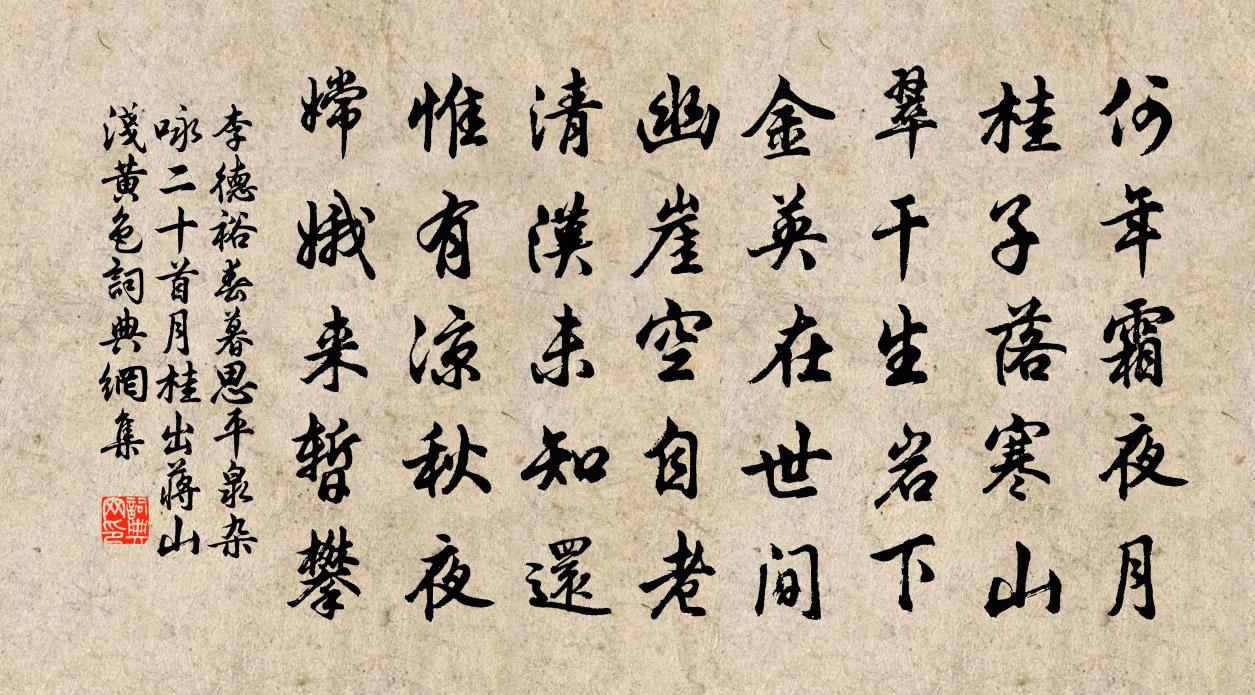 何年霜夜月
桂子落寒山
翠干生岩下
金英在世间
幽崖空自老
清漢未知還
惟有凉秋夜
嫦娥来暫攀
李德裕春暮思平泉杂
咏二十首月桂出蔣山
淺黄色詞典網集
詞典
网印